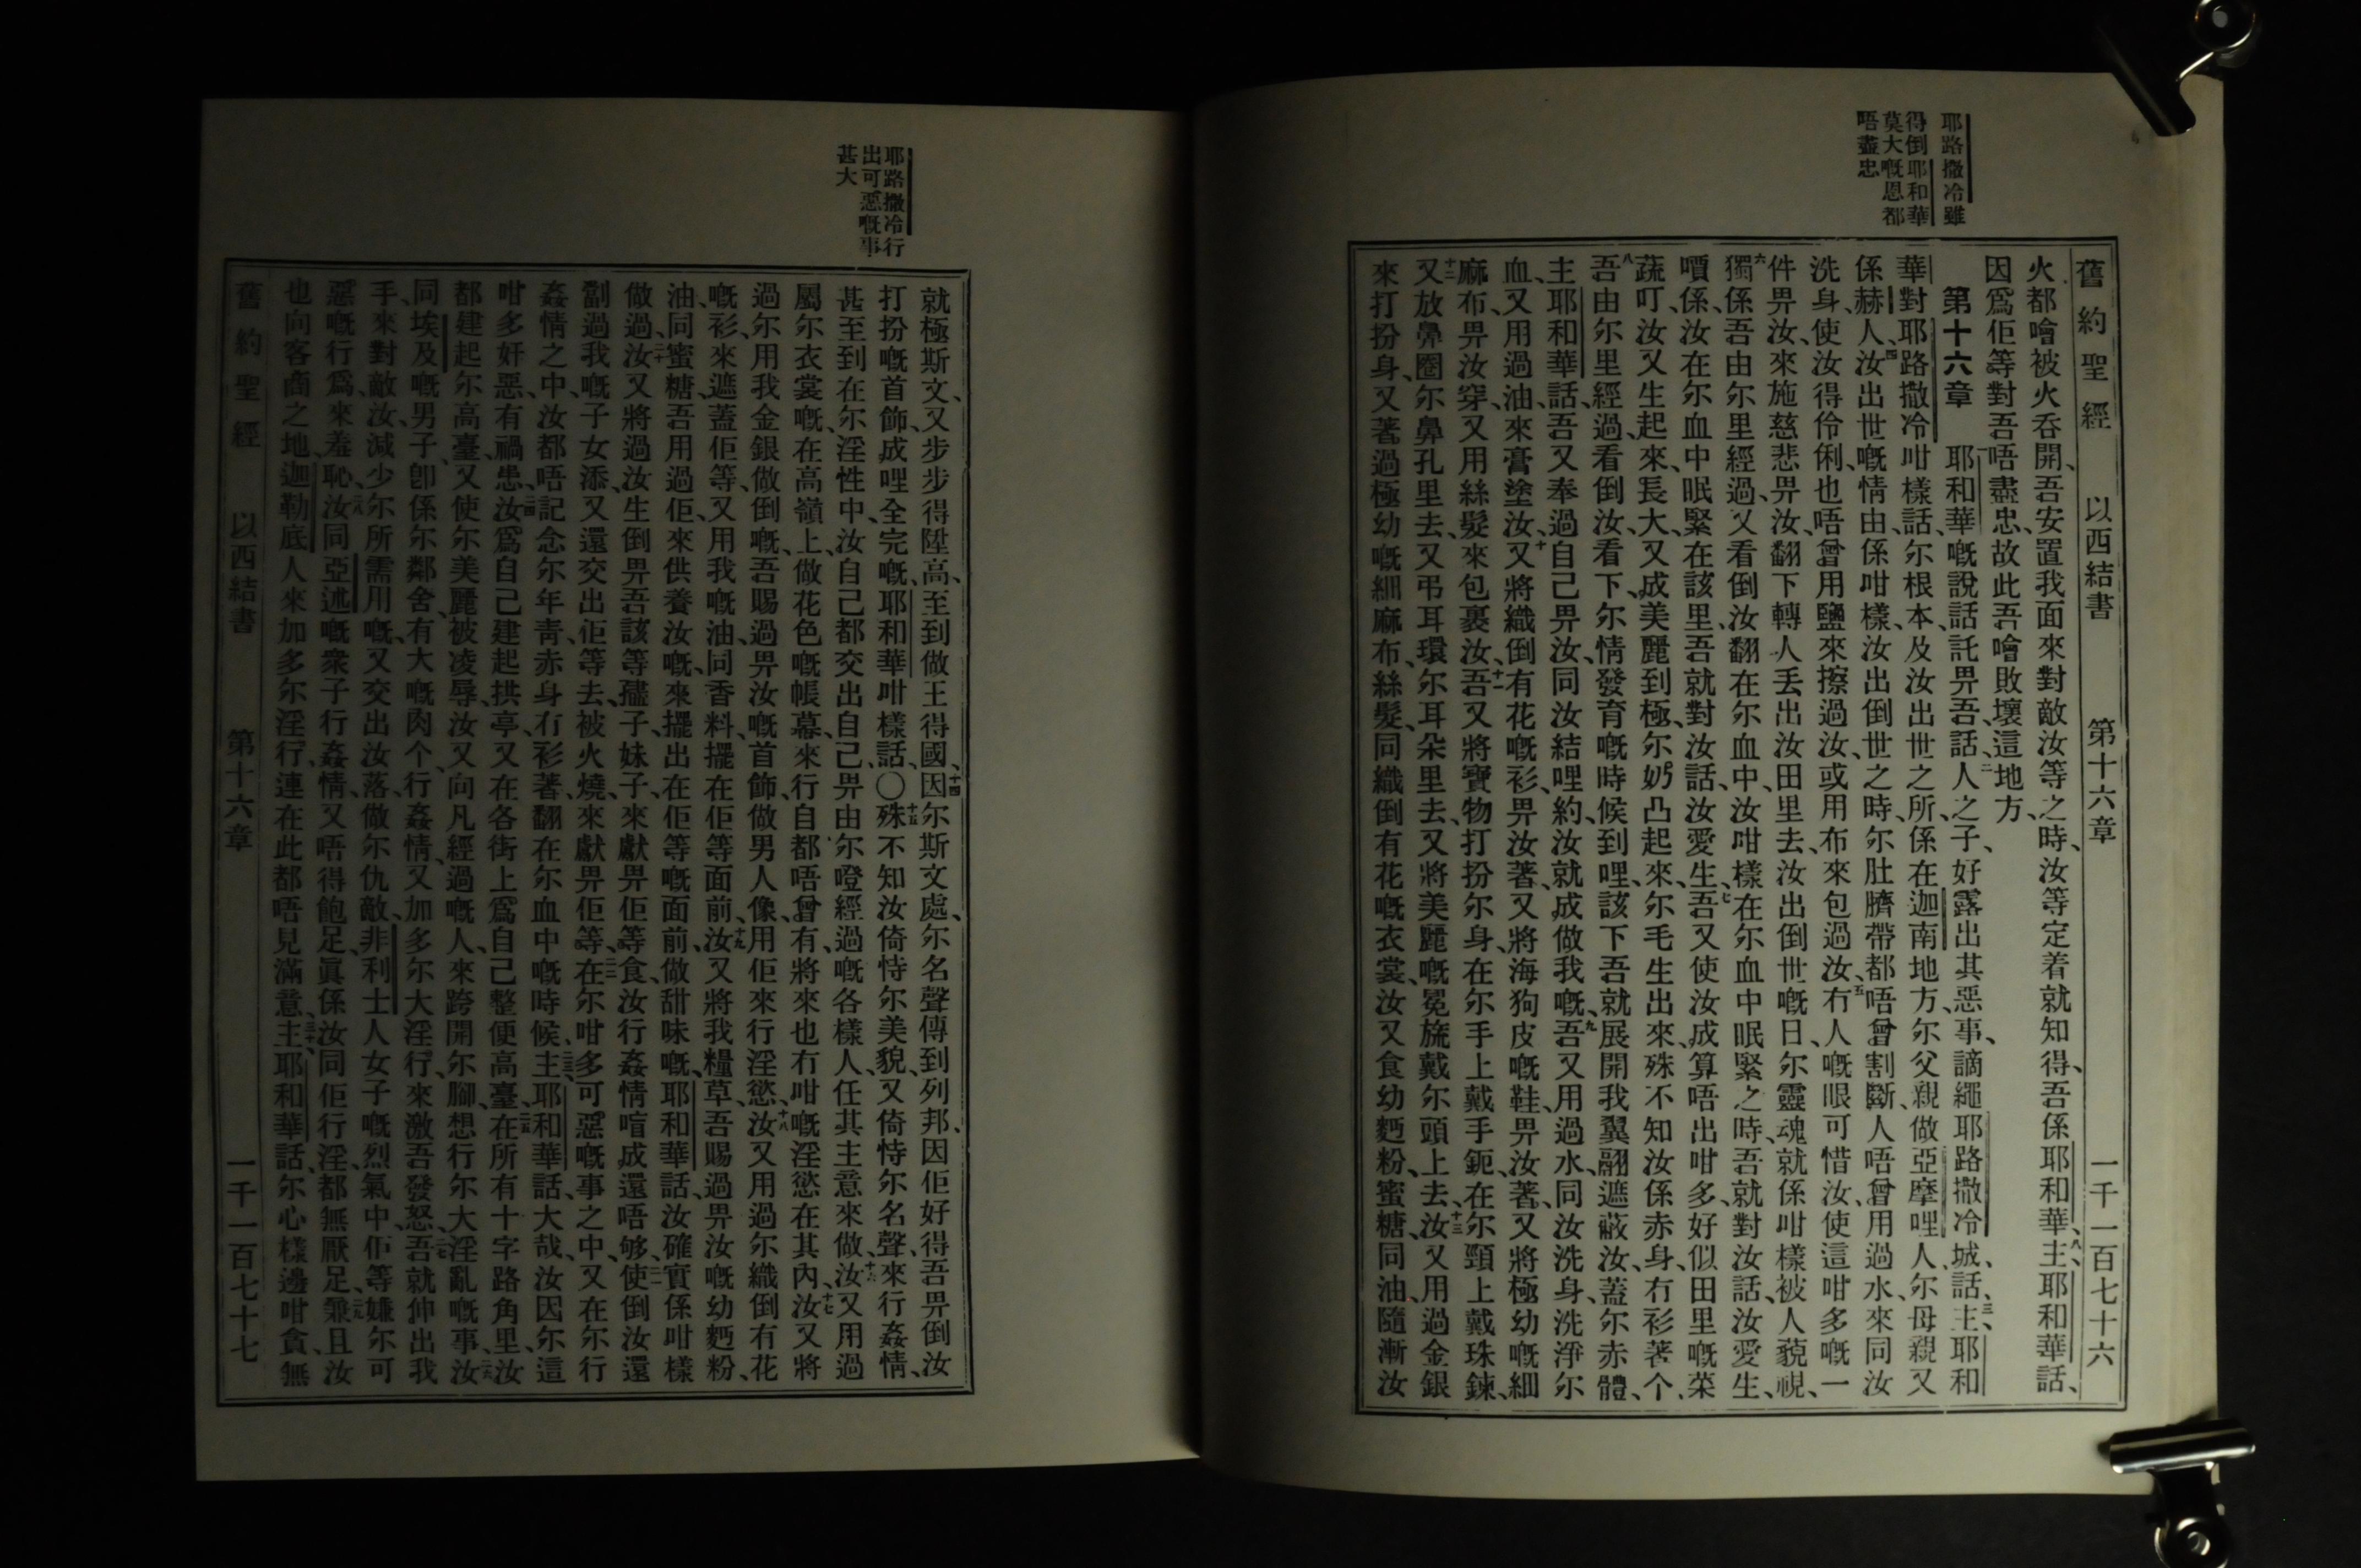 耶路撒冷雖
得倒耶和華
莫大嘅恩都
唔盡忠
舊約聖經 以西結書 第十六章 一千一百七十六
火都噲被火吞開、吾安置我面來對敵汝等之時、汝等定着就知得、吾係耶和華、八主耶和華話、
因爲佢等對吾唔盡忠、故此吾噲敗壞這地方、
第十六章 一耶和華嘅說話託畀吾話、二人之子、好露出其惡事、謫繩耶路撒冷城、話、三主耶和
華對耶路撒冷咁樣話、尔根本、及汝出世之所、係在迦南地方、尔父親做亞摩哩人、尔母親又
係赫人、四汝出世嘅情由、係咁樣、汝出倒世之時、尔肚臍帶都唔曾割斷、人唔曾用過水來同汝
洗身、使汝得伶俐、也唔曾用鹽來擦過汝、或用布來包過汝、五冇人嘅眼可惜汝、使這咁多嘅一
件畀汝、來施慈悲畀汝、翻下轉人丢出汝田里去、汝出倒世嘅日、尔靈魂就係咁樣被人藐視、
六獨係吾由尔里經過、又看倒汝翻在尔血中、汝咁樣在尔血中眠緊之時、吾就對汝話、汝愛生、
嘖係、汝在尔血中眠緊在該里、吾就對汝話、汝愛生、七吾又使汝成算唔出咁多、好似田里嘅菜
蔬叮、汝又生起來、長大、又成美麗到極、尔奶凸起來、尔毛生出來、殊不知汝係赤身、冇衫著个、
八吾由尔里經過、看倒汝、看下、尔情發育嘅時候到哩、該下吾就展開我翼翮、遮蔽汝、蓋尔赤體、
主耶和華話、吾又奉過自己畀汝、同汝結哩約、汝就成做我嘅、九吾又用過水、同汝洗身、洗淨尔
血、又用過油、來膏塗汝、十又將織倒有花嘅衫、畀汝著、又將海狗皮嘅鞋、畀汝著、又將極幼嘅細
麻布、畀汝穿、又用絲髮來包裹汝、十一吾又將寶物打扮尔身、在尔手上戴手鈪、在尔頸上戴珠鍊、
十二又放鼻圈尔鼻孔里去、又弔耳環尔耳朵里去、又將美麗嘅冕旒戴尔頭上去、十三汝又用過金銀
來打扮身、又著過極幼嘅細麻布、絲髮、同織倒有花嘅衣裳、汝又食幼麪粉、蜜糖、同油、隨漸汝
耶路撒冷行
出可惡嘅事
甚大
就極斯文、又步步得陞高、至到做王得國、十四因尔斯文處、尔名聲傳到列邦、因佢好得吾畀倒汝
打扮嘅首飾、成哩全完嘅、耶和華咁樣話、〇十五殊不知汝倚恃尔美貌、又倚恃尔名聲、來行姦情、
甚至到在尔淫性中、汝自己都交出自己、畀由尔嶝經過嘅各樣人、任其主意來做、十六汝又用過
屬尔衣裳嘅、在高嶺上、做花色嘅帳幕、來行自都唔曾有、將來也冇咁嘅淫慾在其內、十七汝又將
過尔用我金銀、做倒嘅、吾賜過畀汝嘅首飾、做男人像、用佢來行淫慾、十八汝又用過尔織倒有花
嘅衫、來遮蓋佢等、又用我嘅油、同香料、擺在佢等面前、十九汝又將我糧草、吾賜過畀汝嘅幼麪粉、
油、同蜜糖、吾用過佢、來供養汝嘅、來擺出在佢等嘅面前、做甜味嘅、耶和華話、汝確實係咁樣
做過、二十汝又將過汝生倒畀吾該等孻子、妹子、來獻畀佢等食、汝行姦情喑成還唔够、二一使倒汝還
劏過我嘅子女添、又還交出佢等去、被火燒、來獻畀佢等、二二在尔咁多可惡嘅事之中、又在尔行
姦情之中、汝都唔記念尔年青、赤身冇衫著、翻在尔血中嘅時候、二三主耶和華話、大哉、汝因尔這
咁多奸惡、有禍患、二四汝爲自己建起拱亭、又在各街上爲自己整便高臺、二五在所有十字路角里、汝
都建起尔高臺、又使尔美麗被凌辱、汝又向凡經過嘅人、來跨開尔腳、想行尔大淫亂嘅事、二六汝
同埃及嘅男子、卽係尔鄰舍、有大嘅肉个、行姦情、又加多尔大淫行、來激吾發怒、二七吾就伸出我
手、來對敵汝、減少尔所需用嘅、又交出汝落做尔仇敵、非利士人女子嘅烈氣中、佢等嫌尔可
惡嘅行爲、來羞恥、二八汝同亞述嘅衆子行姦情、又唔得飽足、眞係汝同佢行淫、都無厭足、二九兼且汝
也向客商之地、迦勒底人來加多尔淫行、連在此都唔見滿意、三十主耶和華話、尔心樣邊咁貪、無
舊約聖經 以西結書 第十六章 一千一百七十七